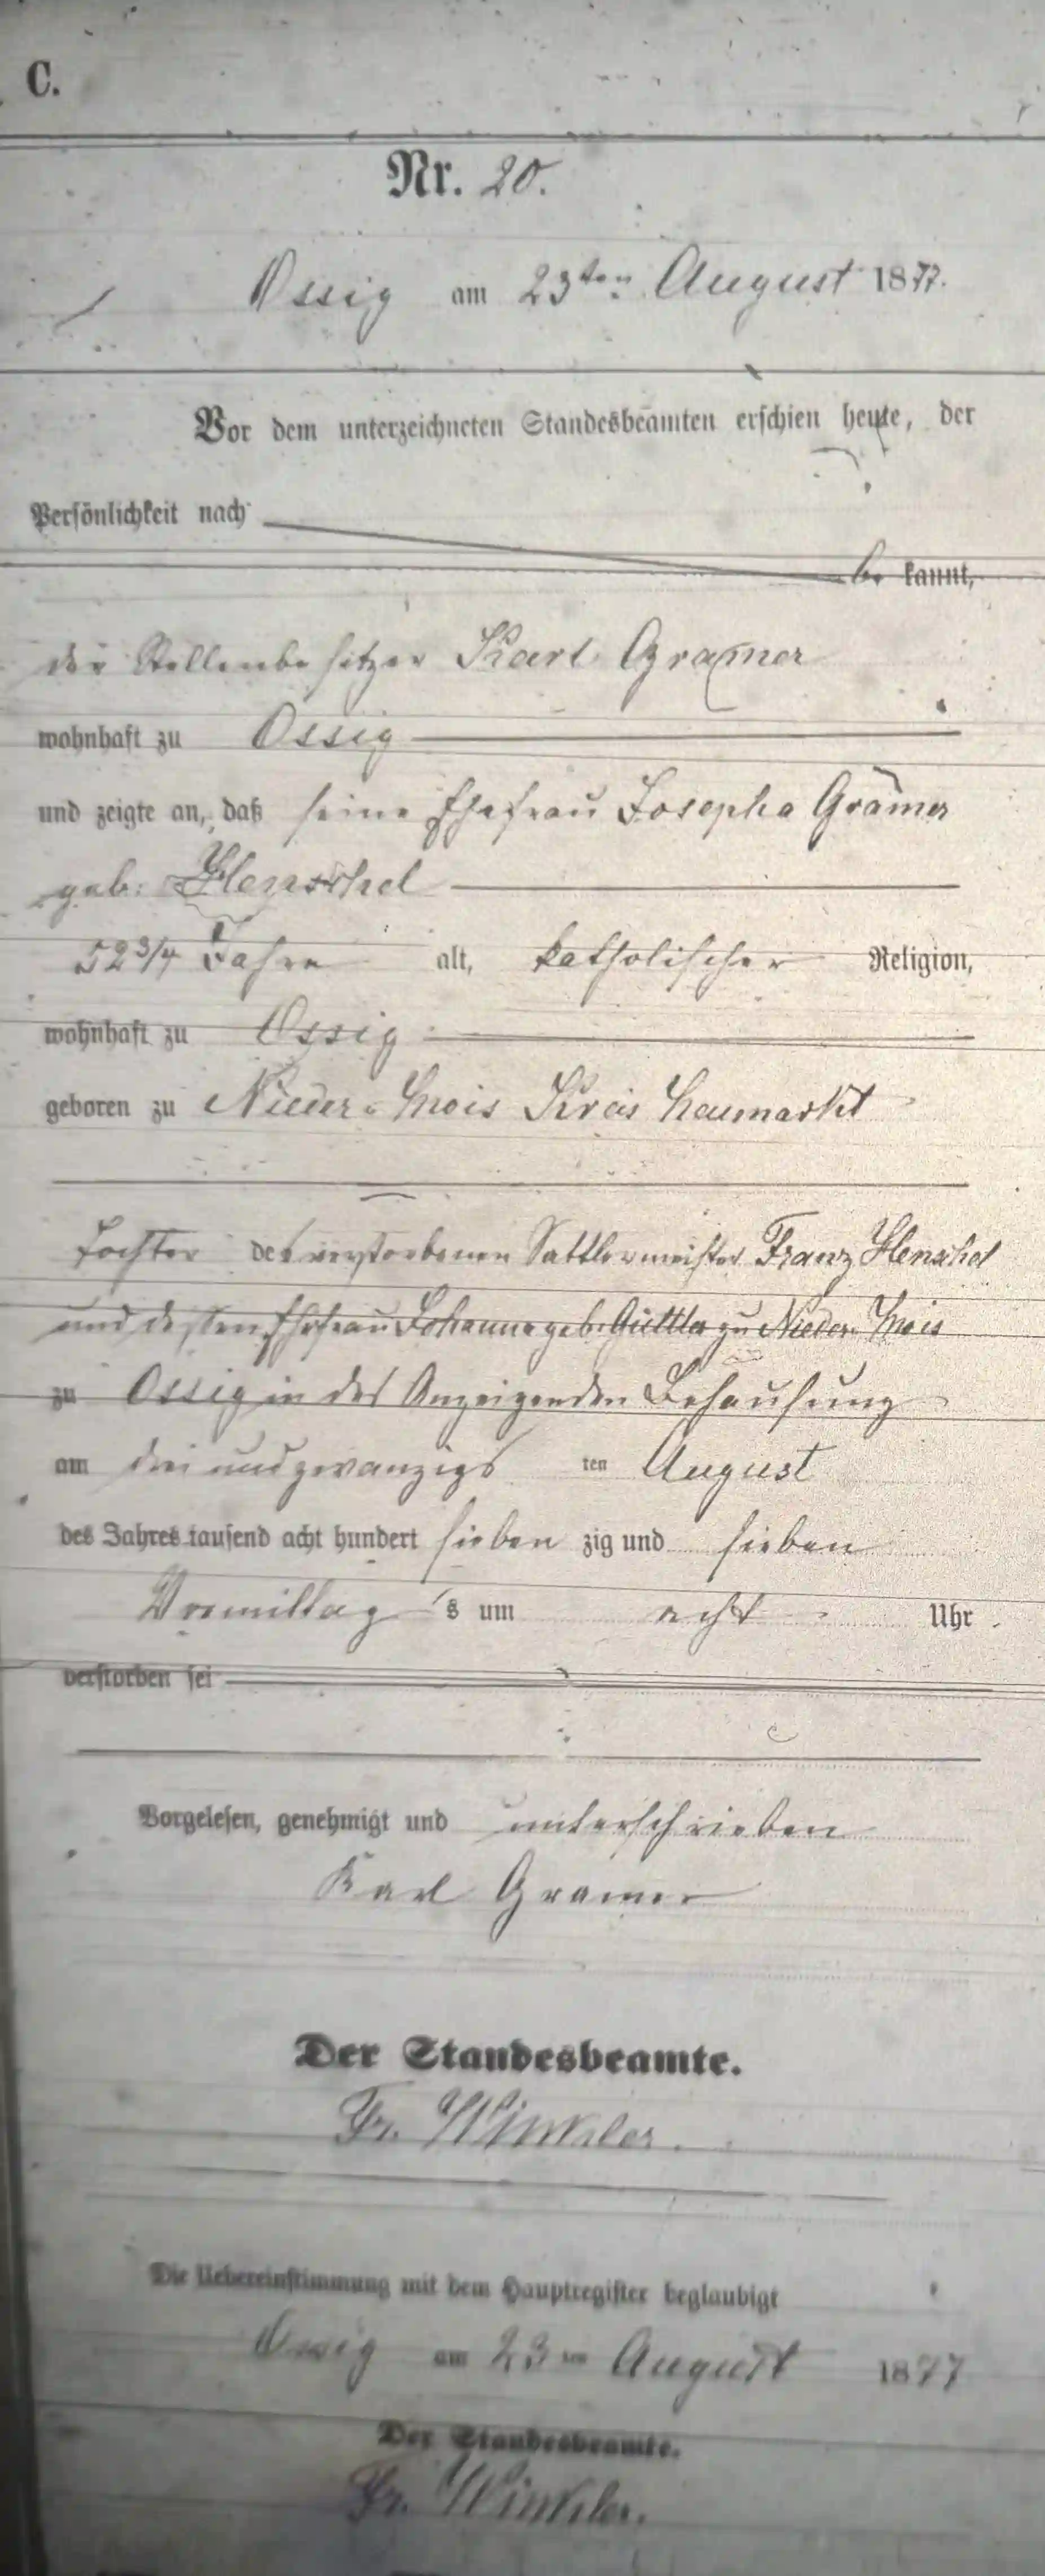 C.
Nr. 20.
Ossig am 23ten August 1877.
Vor dem unterzeichneten Standesbeamten erschien heute, der
Persönlichkeit nach
be kannt,
der Stellenbesitzer Karl Gramer
wohnhaft zu Ossig
und zeigte an, daß seine Ehefrau Josepha Gramer
geb: Henschel
52 3/4 Jahre alt, katholischer Religion,
wohnhaft zu Ossig
geboren zu Nieder-Mois Kreis Neumarkt
Tochter des verstorbenen Sattlermeister Franz Henschel
und dessen Ehefrau Johanne geb. Güttler zu Nieder Mois
zu Ossig in des Anzeigenden Behausung
am drei und zwanzigs ten August
des Jahres tausend acht hundert sieben zig und sieben
Vormittag s um acht Uhr
verstorben sei
Vorgelesen, genehmigt und unterschrieben
Karl Gramer
Der Standesbeamte.
Fr. Winkler.
Die Uebereinstimmung mit dem Hauptregister beglaubigt
Ossig am 23ten August 1877
Der Standesbeamte.
Fr. Winkler.